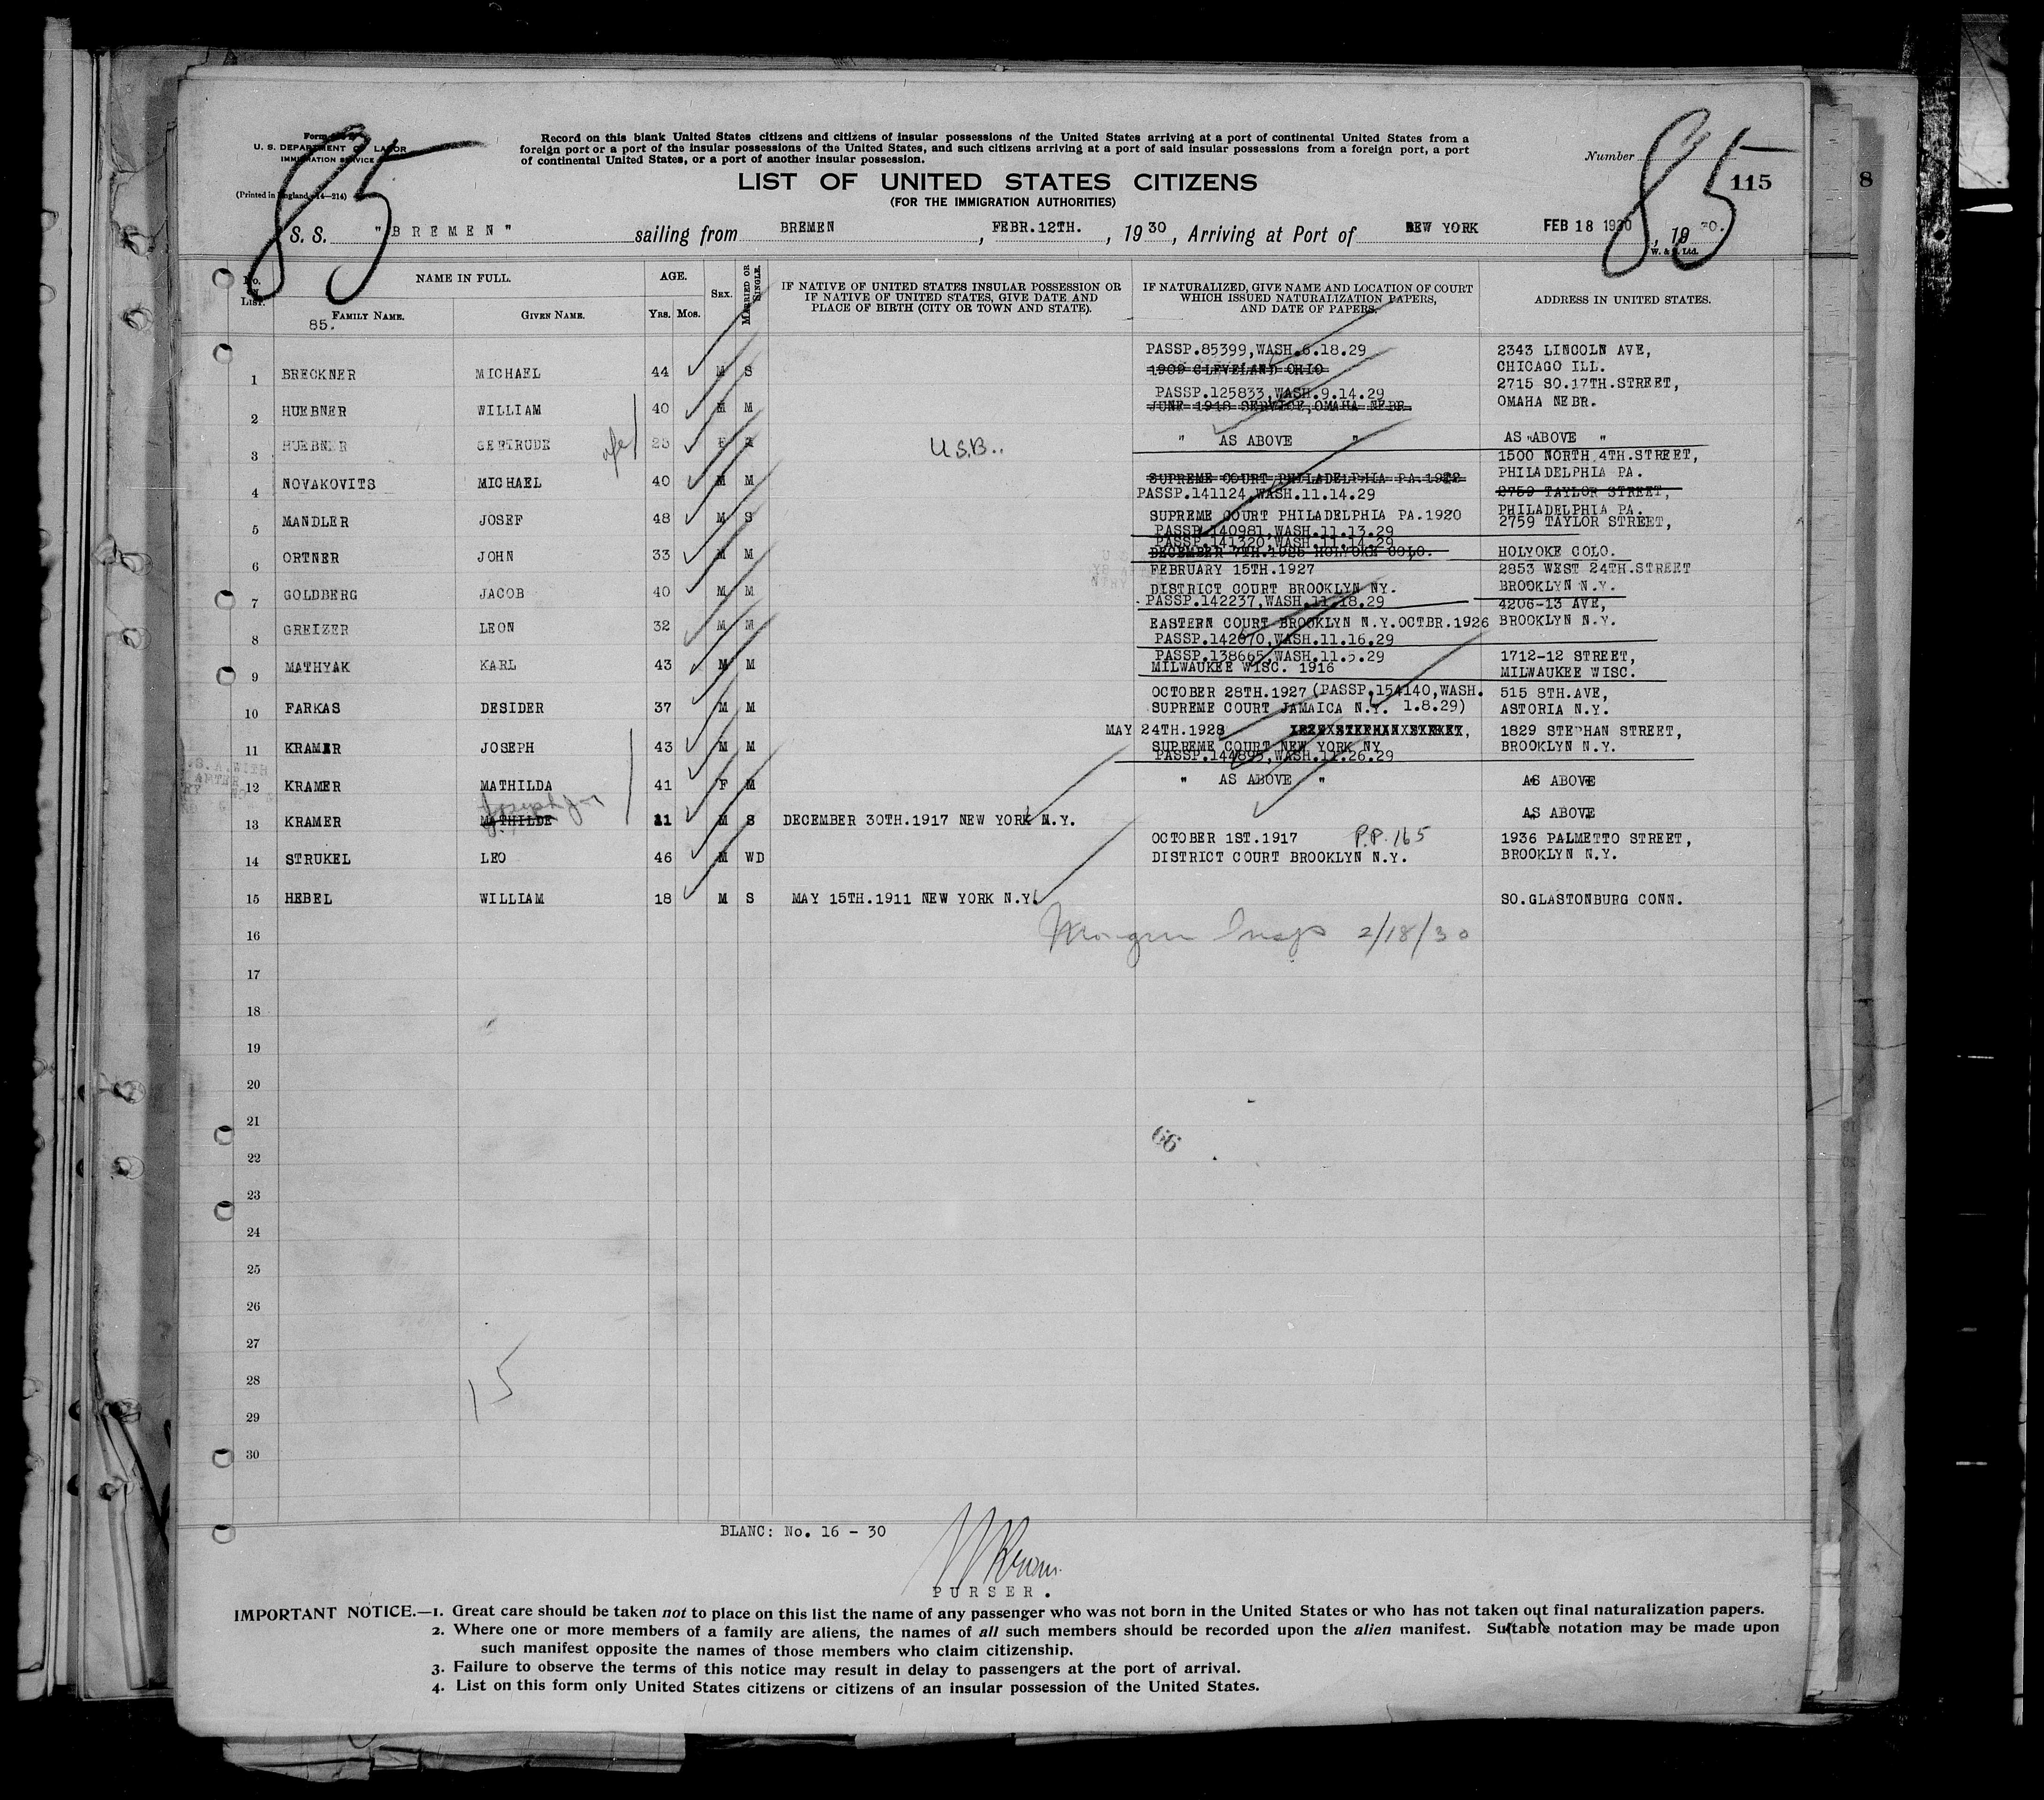 Form
U. S. DEPARTMENT OF LABOR
IMMIGRATION SERVICE
(Printed in England, 14—214)
85
Record on this blank United States citizens and citizens of insular possessions of the United States arriving at a port of continental United States from a
foreign port or a port of the insular possessions of the United States, and such citizens arriving at a port of said insular possessions from a foreign port, a port
of continental United States, or a port of another insular possession.
Number
85
115
8
LIST OF UNITED STATES CITIZENS
(FOR THE IMMIGRATION AUTHORITIES)
S. S. "BREMEN" sailing from BREMEN, FEBR.12TH., 1930, Arriving at Port of NEW YORK FEB 18 1930, 1930.
W. & S. Ltd.
No. on List. NAME IN FULL. AGE. SEX. MARRIED OR SINGLE. IF NATIVE OF UNITED STATES INSULAR POSSESSION OR IF NATIVE OF UNITED STATES, GIVE DATE AND PLACE OF BIRTH (CITY OR TOWN AND STATE). IF NATURALIZED, GIVE NAME AND LOCATION OF COURT WHICH ISSUED NATURALIZATION PAPERS, AND DATE OF PAPERS. ADDRESS IN UNITED STATES.
FAMILY NAME. GIVEN NAME. Yrs. Mos.
85.
PASSP.85399,WASH.6.18.29 2343 LINCOLN AVE,
1 BRECKNER MICHAEL 44 M S 1909 CLEVELAND OHIO CHICAGO ILL.
PASSP.125833,WASH.9.14.29 2715 SO.17TH.STREET,
2 HUEBNER WILLIAM 40 M M JUNE 1918 SERVICE,OMAHA NEBR. OMAHA NEBR.
3 HUEBNER GERTRUDE wfe 25 F M U.S.B.. " AS ABOVE " AS "ABOVE "
1500 NORTH 4TH.STREET,
4 NOVAKOVITS MICHAEL 40 M M SUPREME COURT PHILADELPHIA PA.1922 PHILADELPHIA PA.
PASSP.141124,WASH.11.14.29 2759 TAYLOR STREET,
PHILADELPHIA PA.
5 MANDLER JOSEF 48 M S SUPREME COURT PHILADELPHIA PA.1920 2759 TAYLOR STREET,
PASSP.140981,WASH.11.13.29
PASSP.141320,WASH.11.14.29
6 ORTNER JOHN 33 M M DECEMBER 7TH.1925 HOLYOKE COLO. HOLYOKE COLO.
FEBRUARY 15TH.1927 2853 WEST 24TH.STREET
7 GOLDBERG JACOB 40 M M DISTRICT COURT BROOKLYN NY. BROOKLYN N.Y.
PASSP.142237,WASH.11.18.29 4206-13 AVE,
8 GREIZER LEON 32 M M EASTERN COURT BROOKLYN N.Y.OCTBR.1926 BROOKLYN N.Y.
PASSP.142070,WASH.11.16.29
PASSP.138665,WASH.11.5.29 1712-12 STREET,
9 MATHYAK KARL 43 M M MILWAUKEE WISC. 1916 MILWAUKEE WISC.
OCTOBER 28TH.1927 (PASSP.154140,WASH. 515 8TH.AVE,
10 FARKAS DESIDER 37 M M SUPREME COURT JAMAICA N.Y. 1.8.29) ASTORIA N.Y.
MAY 24TH.1928 1829 STEPHAN STREET,
11 KRAMER JOSEPH 43 M M SUPREME COURT NEW YORK NY BROOKLYN N.Y.
PASSP.144895,WASH.11.26.29
12 KRAMER MATHILDA 41 F M " AS ABOVE " AS ABOVE
Joseph Jr
13 KRAMER MATHILDE 11 M S DECEMBER 30TH.1917 NEW YORK N.Y. AS ABOVE
OCTOBER 1ST.1917 P.P. 165 1936 PALMETTO STREET,
14 STRUKEL LEO 46 M WD DISTRICT COURT BROOKLYN N.Y. BROOKLYN N.Y.
15 HEBEL WILLIAM 18 M S MAY 15TH.1911 NEW YORK N.Y. SO.GLASTONBURG CONN.
16 Insp 2/18/30
17
18
19
20
21
66
22
23
24
25
26
27
28
15
29
30
BLANC: No. 16 - 30
PURSER.
IMPORTANT NOTICE.—1. Great care should be taken not to place on this list the name of any passenger who was not born in the United States or who has not taken out final naturalization papers.
2. Where one or more members of a family are aliens, the names of all such members should be recorded upon the alien manifest. Suitable notation may be made upon
such manifest opposite the names of those members who claim citizenship.
3. Failure to observe the terms of this notice may result in delay to passengers at the port of arrival.
4. List on this form only United States citizens or citizens of an insular possession of the United States.